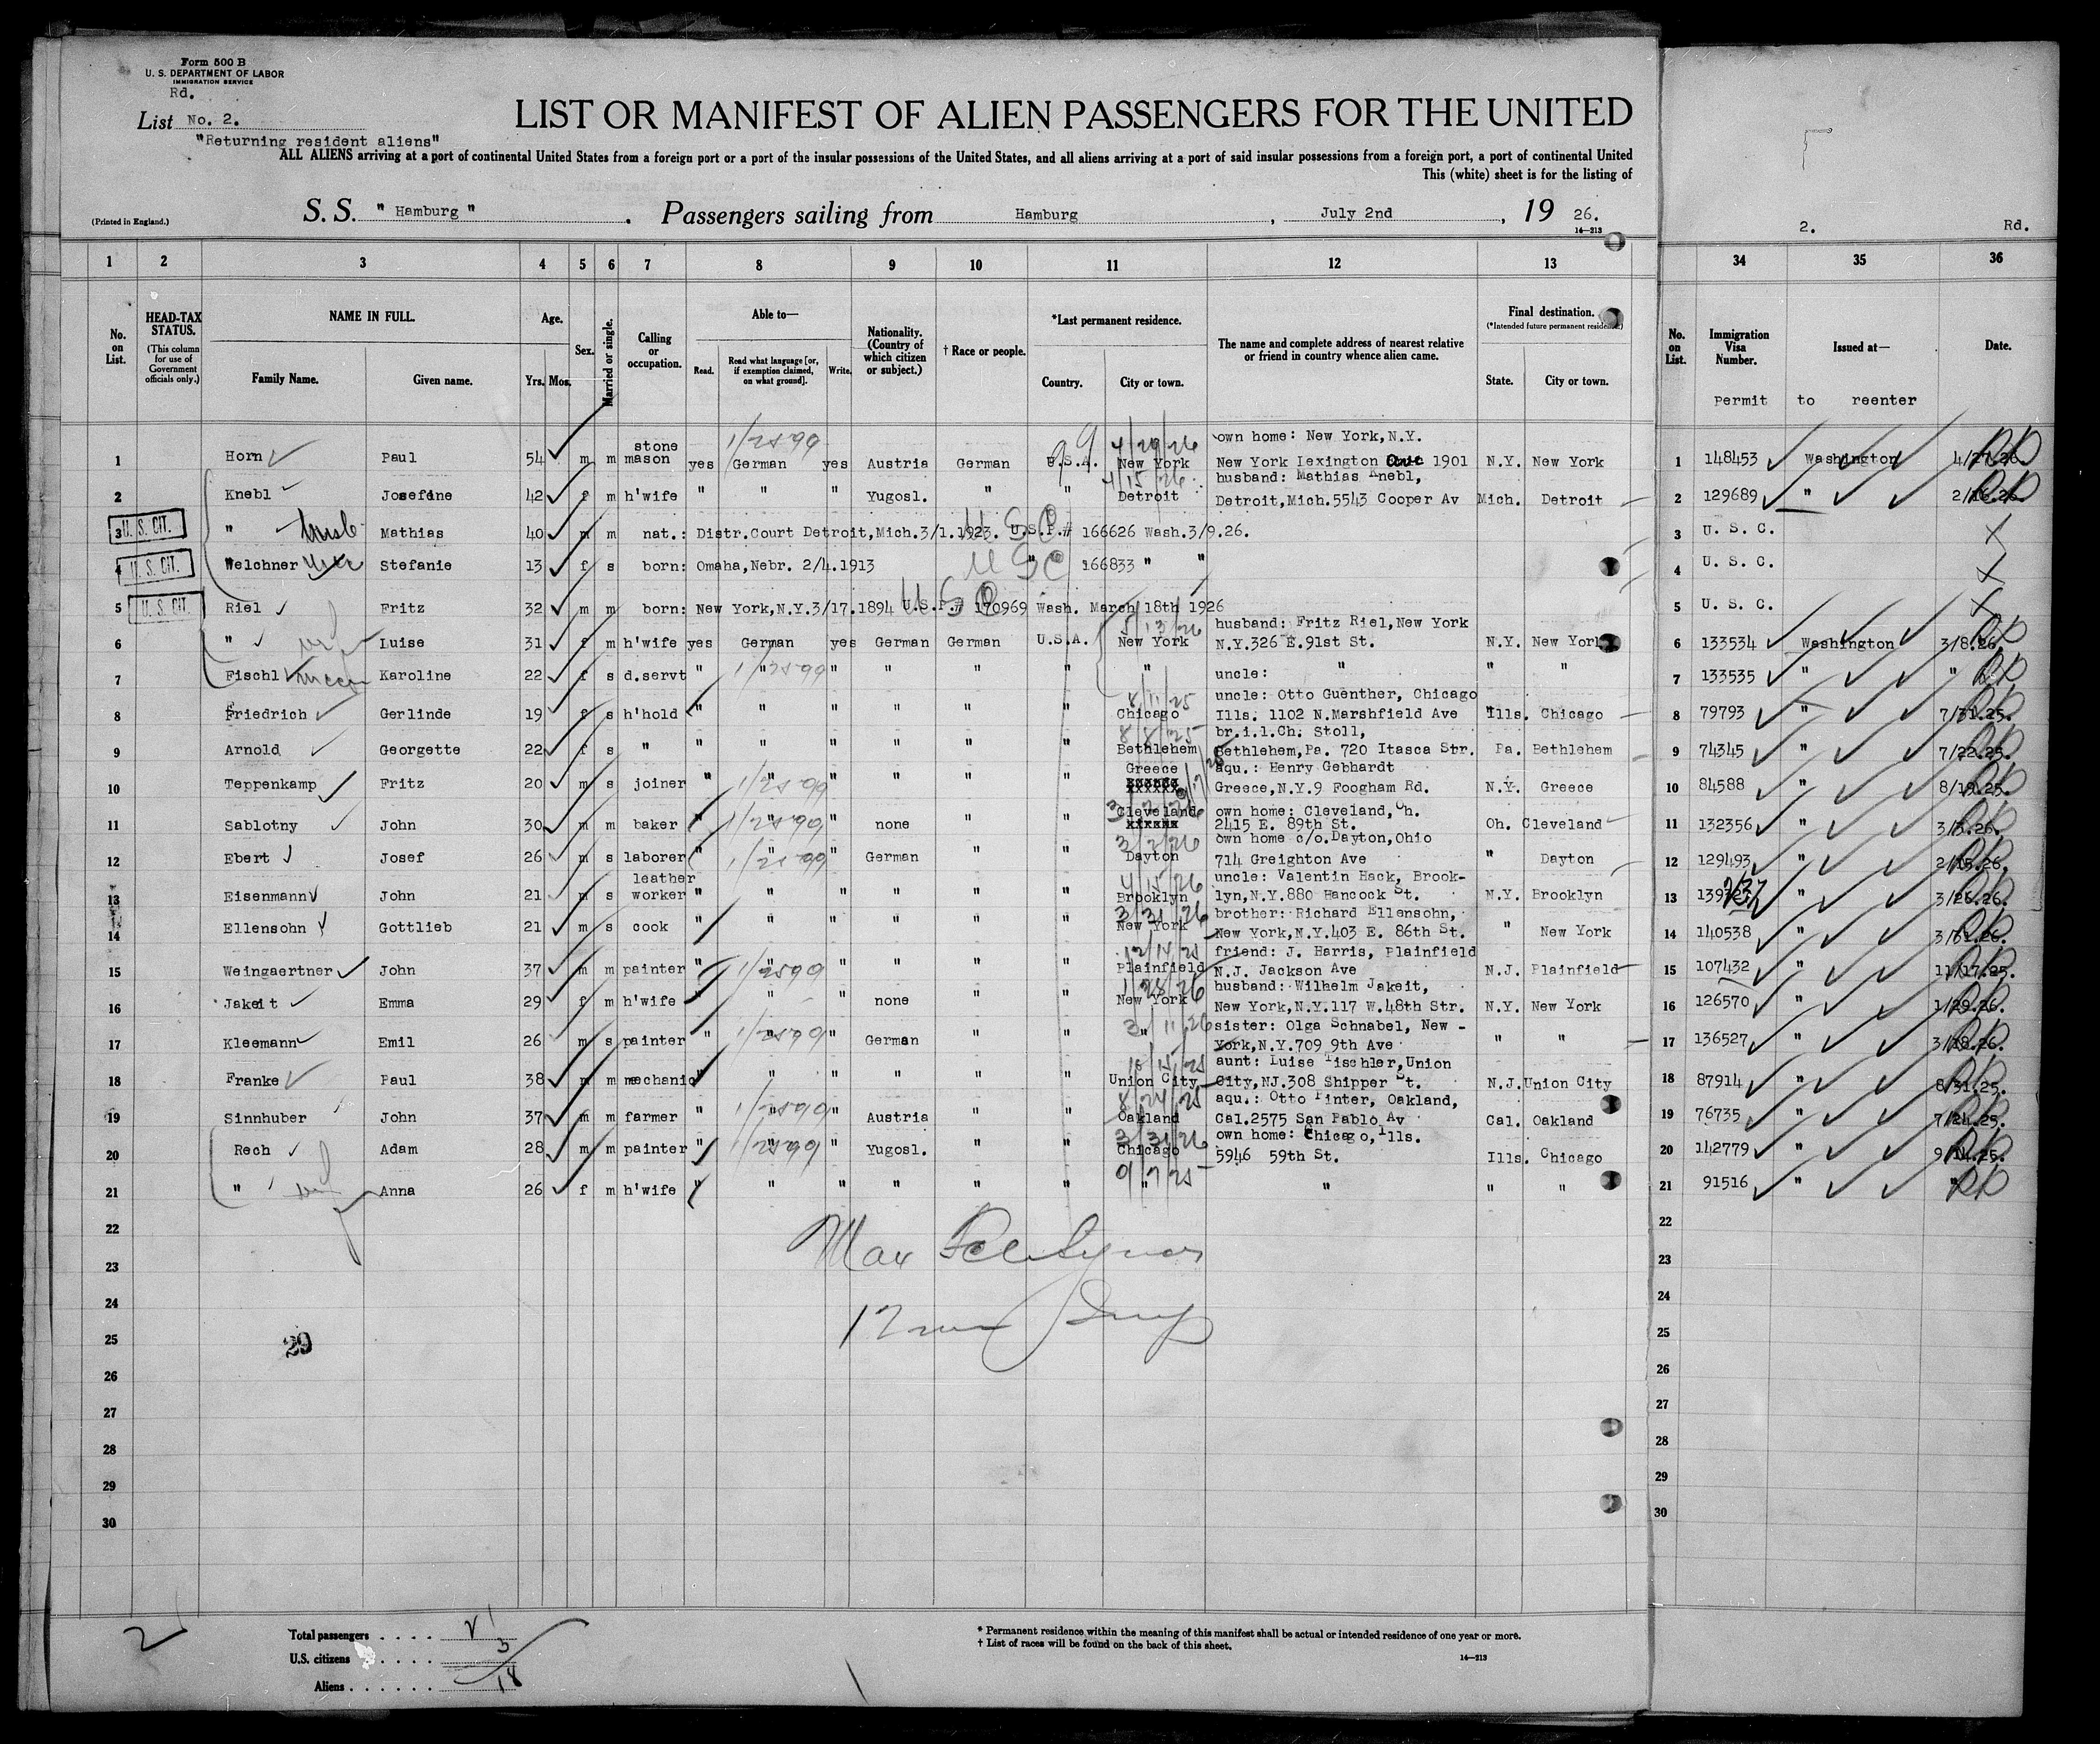 Form 500 B
U. S. DEPARTMENT OF LABOR
IMMIGRATION SERVICE
Rd.
List No. 2.
"Returning resident aliens"
LIST OR MANIFEST OF ALIEN PASSENGERS FOR THE UNITED
ALL ALIENS arriving at a port of continental United States from a foreign port or a port of the insular possessions of the United States, and all aliens arriving at a port of said insular possessions from a foreign port, a port of continental United
This (white) sheet is for the listing of
(Printed in England.)
S. S. " Hamburg " . Passengers sailing from Hamburg , July 2nd , 19 26.
14—213
2. Rd.
1 2 3 4 5 6 7 8 9 10 11 12 13 34 35 36
No. on List.
HEAD-TAX STATUS.
(This column for use of Government officials only.)
NAME IN FULL.
Family Name. Given name.
Age.
Yrs. Mos.
Sex.
Married or single.
Calling or occupation.
Able to—
Read. Read what language [or, if exemption claimed, on what ground]. Write.
Nationality. (Country of which citizen or subject.)
† Race or people.
*Last permanent residence.
Country. City or town.
The name and complete address of nearest relative or friend in country whence alien came.
Final destination.
(*Intended future permanent residence.)
State. City or town.
No. on List.
Immigration Visa Number.
Issued at—
Date.
Permit to reenter
1/2590 4/29/26 own home: New York,N.Y.
1 Horn Paul 54 m m stone mason yes German yes Austria German U.S.A. New York New York Lexington Ave 1901 N.Y. New York 1 148453 Washington 4/27.26.
4/15/26 husband: Mathias Knebl,
2 Knebl Josefine 42 f m h'wife " " Yugosl. " " Detroit Detroit,Mich.5543 Cooper Av Mich. Detroit 2 129689 " 2/16.26.
3 U. S. CIT. " Mathias 40 m m nat.: Distr.Court Detroit,Mich.3/1.1923. U.S.P.# 166626 Wash.3/9.26. 3 U. S. C.
4 U. S. CIT. Welchner Stefanie 13 f s born: Omaha,Nebr. 2/4.1913 USC " 166833 " " 4 U. S. C.
5 U. S. CIT. Riel Fritz 32 m m born: New York,N.Y.3/17.1894 U.S.P.# 170969 Wash. March 18th 1926 5 U. S. C.
5/13/26 husband: Fritz Riel,New York
6 " Luise 31 f m h'wife yes German yes German German U.S.A. New York N.Y.326 E.91st St. N.Y. New York 6 133534 Washington 3/8.26.
7 Fischl Karoline 22 f s d.servt " " " " " " " uncle: " " " 7 133535 " "
8/11/25 uncle: Otto Guenther, Chicago
8 Friedrich Gerlinde 19 f s h'hold " " " " " " Chicago Ills. 1102 N.Marshfield Ave Ills. Chicago 8 79793 " 7/31.25.
8/8/25 br.i.l.Ch. Stoll,
9 Arnold Georgette 22 f s " " " " " " " Bethlehem Bethlehem,Pa. 720 Itasca Str. Pa. Bethlehem 9 74345 " 7/22.25.
Greece aqu.: Henry Gebhardt
10 Teppenkamp Fritz 20 m s joiner " " " " " " xxxxxx Greece,N.Y.9 Foogham Rd. N.Y. Greece 10 84588 " 8/19.25.
Cleveland own home: Cleveland,Oh.
11 Sablotny John 30 m m baker " " " none " " xxxxxx 2415 E. 89th St. Oh. Cleveland 11 132356 " 3/3.26.
own home c/o.Dayton,Ohio
12 Ebert Josef 26 m s laborer " " German " " Dayton 714 Greighton Ave " Dayton 12 129493 " 2/15.26.
4/15/26 uncle: Valentin Hack, Brook-
13 Eisenmann John 21 m s leather worker " " " " " " Brooklyn lyn,N.Y.880 Hancock St. N.Y. Brooklyn 13 " 3/26.26.
3/31/26 brother: Richard Ellensohn,
14 Ellensohn Gottlieb 21 m s cook " " " " " " New York New York,N.Y.403 E. 86th St. " New York 14 140538 " 3/31.26.
12/14/25 friend: J. Harris, Plainfield
15 Weingaertner John 37 m m painter " " " " " " Plainfield N.J. Jackson Ave N.J. Plainfield 15 107432 " 11/17.25.
1/28/26 husband: Wilhelm Jakeit,
16 Jakeit Emma 29 f m h'wife " " " none " " New York New York,N.Y.117 W.48th Str. N.Y. New York 16 126570 " 1/29.26.
3/11/26 sister: Olga Schnabel, New -
17 Kleemann Emil 26 m s painter " " " German " " " York,N.Y.709 9th Ave " " 17 136527 " 3/18.26.
10/15/25 aunt: Luise Tischler,Union
18 Franke Paul 38 m m mechanic " " " " " " Union City City,NJ.308 Shipper St. N.J. Union City 18 87914 " 8/31.25.
8/24/25 aqu.: Otto Pinter, Oakland,
19 Sinnhuber John 37 m m farmer " " " Austria " " Oakland Cal.2575 San Pablo Av Cal. Oakland 19 76735 " 7/24.25.
3/31/26 own home: Chicago,Ills.
20 Rech Adam 28 m m painter " " " Yugosl. " " Chicago 5946 59th St. Ills. Chicago 20 142779 "
9/7/25
21 " Anna 26 f m h'wife " " " " " " " " " " 21 91516 " "
22 22
Max
23 23
24 24
25 29 25
26 26
27 27
28 28
29 29
30 30
2
Total passengers . . . . 21
U.S. citizens . . . . . 3
Aliens . . . . . . 18
* Permanent residence within the meaning of this manifest shall be actual or intended residence of one year or more.
† List of races will be found on the back of this sheet.
14—213